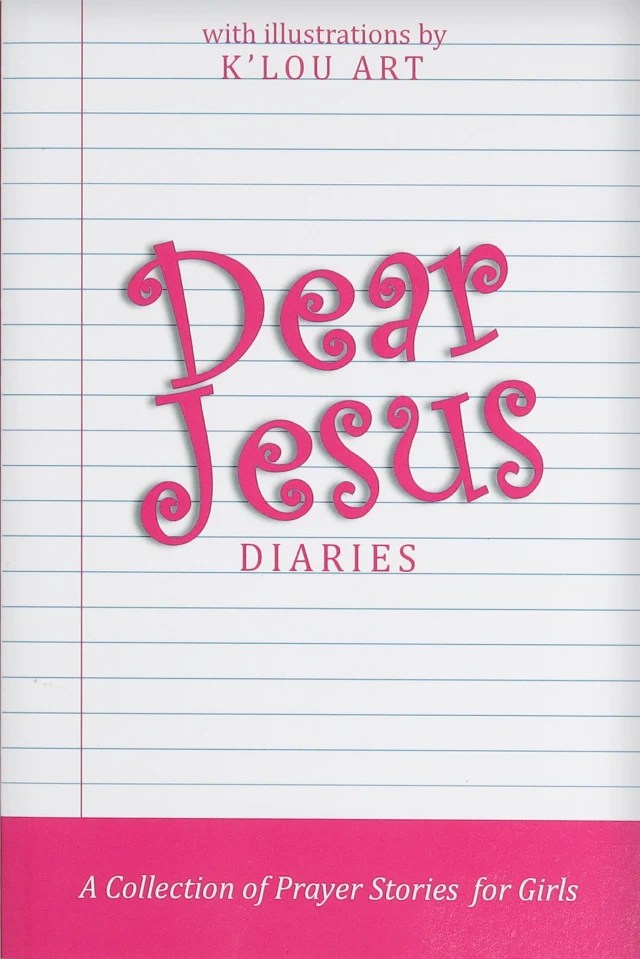 with illustrations by
K’LOU ART
Dear
Jesus
DIARIES
A Collection of Prayer Stories for Girls